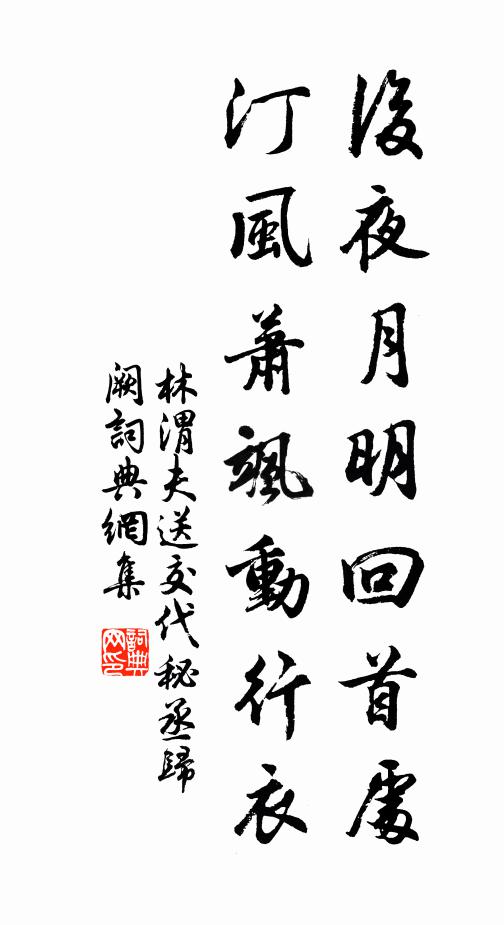 後夜月明回首處
汀風蕭颯動行衣
林渭夫送交代秘丞歸
闕詞典網集
詞典
网印